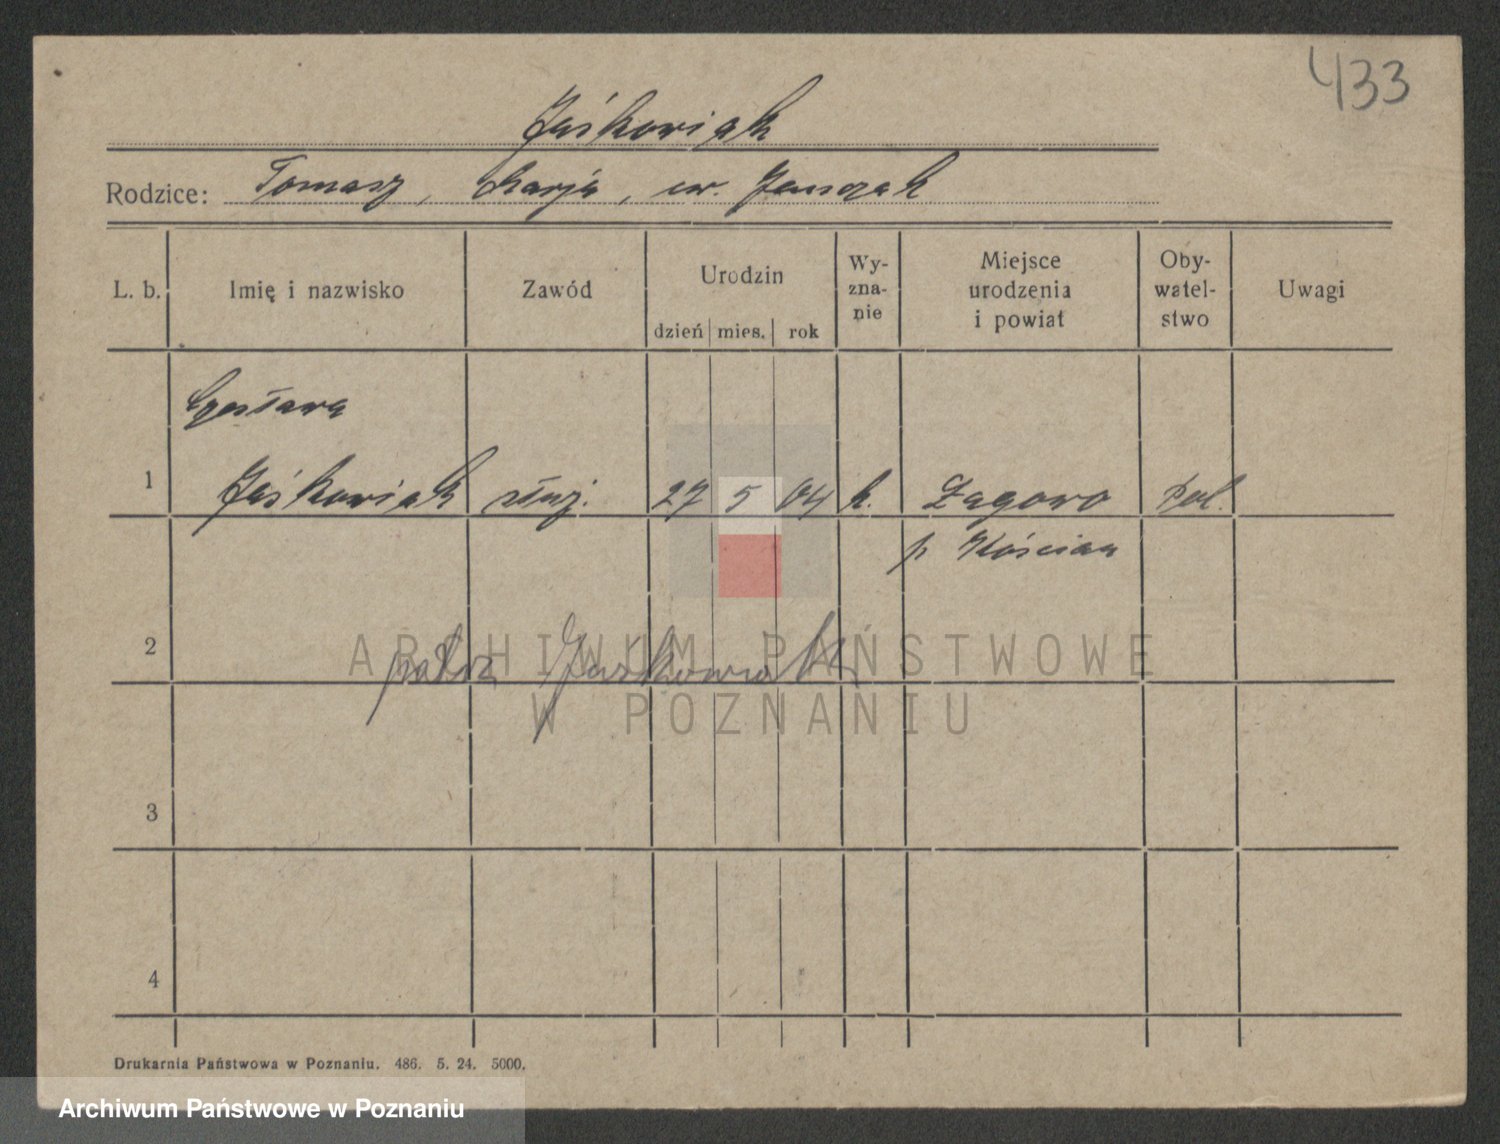 433
Jaśkowiak
Rodzice: Tomasz, Marja, ur. Janczak
L. b. Imię i nazwisko Zawód Urodzin dzień mies. rok Wy-zna-nie Miejsce urodzenia i powiat Oby-watel-stwo Uwagi
Czesława
1 Jaśkowiak służ. 27 5 04 k. Zagoro Pol.
p Kościan
2 patrz Jaśkowiak
ARCHIWUM PAŃSTWOWE
W POZNANIU
3
4
Drukarnia Państwowa w Poznaniu. 486. 5. 24. 5000.
Archiwum Państwowe w Poznaniu